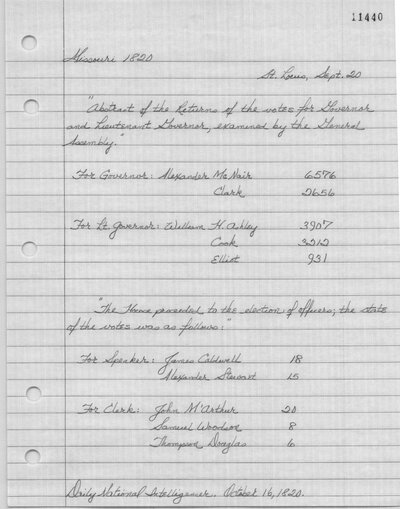 11440
Missouri 1820
St. Louis, Sept. 20
"Abstract of the Returns of the votes for Governor
and Lieutenant Governor, examined by the General
Assembly."
For Governor: Alexander McNair 6576
Clark 2656
For Lt. Governor: William H. Ashley 3907
Cook 3212
Elliot 931
"The House proceeded to the election of officers; the state
of the votes was as follows:"
For Speaker: James Caldwell 18
Alexander Stewart 15
For Clerk: John M'Arthur 20
Samuel Woodson 8
Thompson Douglas 6
Daily National Intelligencer. October 16, 1820.